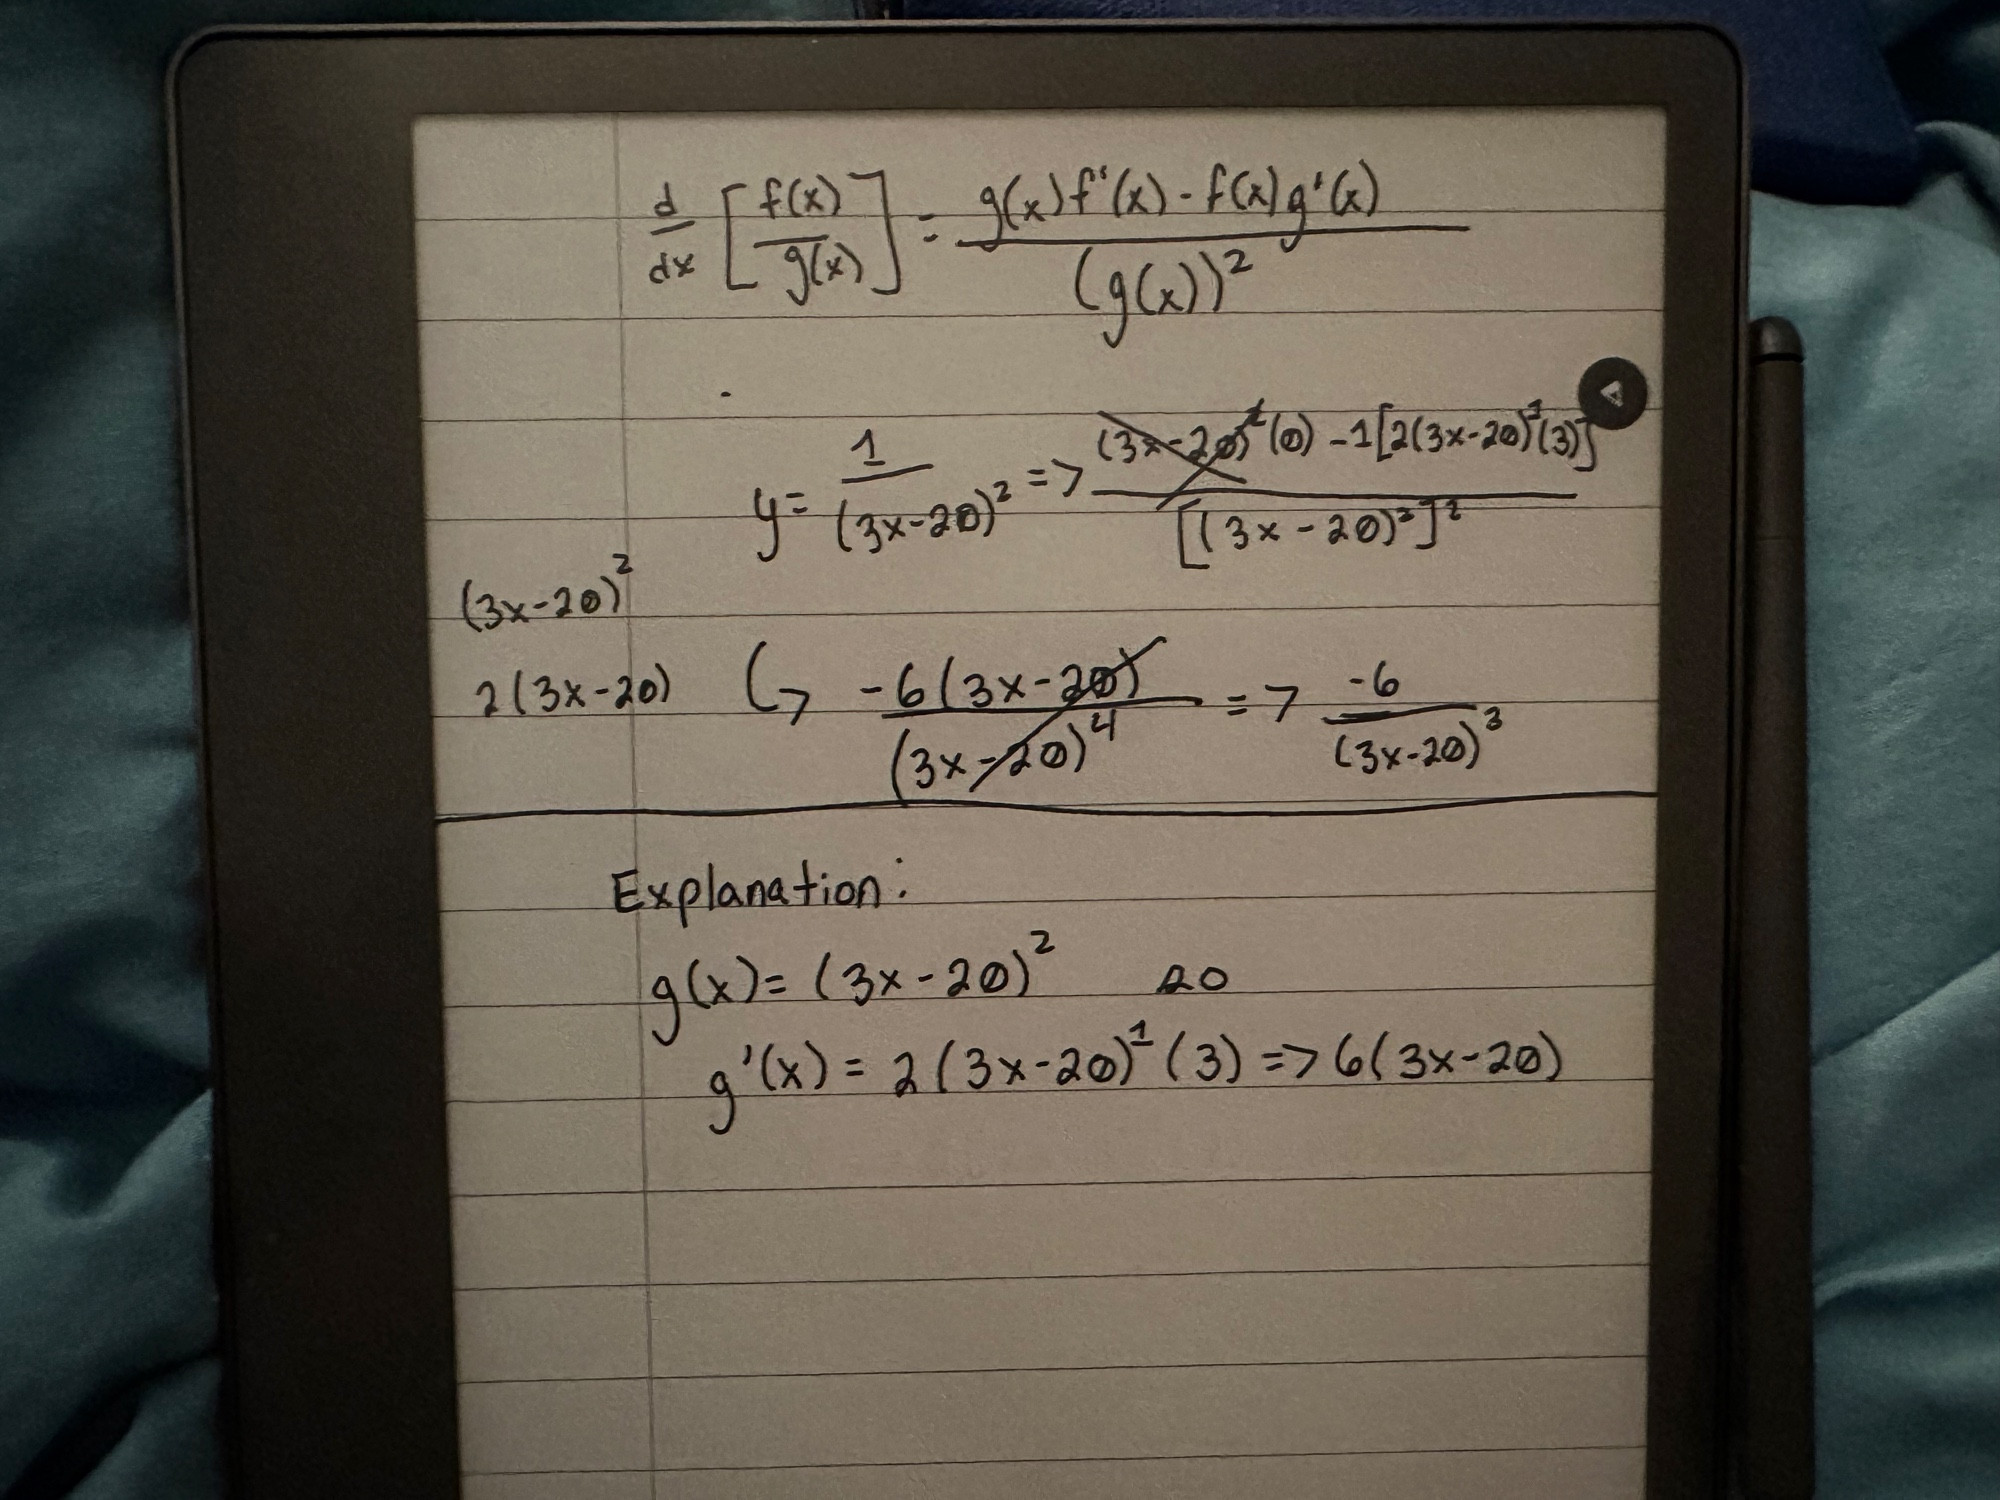 d/dx [f(x)/g(x)] = g(x)f'(x) - f(x)g'(x) / (g(x))²
y = 1/(3x-20)² => (3x-20)²(0) - 1[2(3x-20)¹(3)] / [(3x-20)²]²
(3x-20)²
2(3x-20) ↳ -6(3x-20)/(3x-20)⁴ => -6/(3x-20)³
Explanation:
g(x) = (3x-20)² 20
g'(x) = 2(3x-20)¹(3) => 6(3x-20)